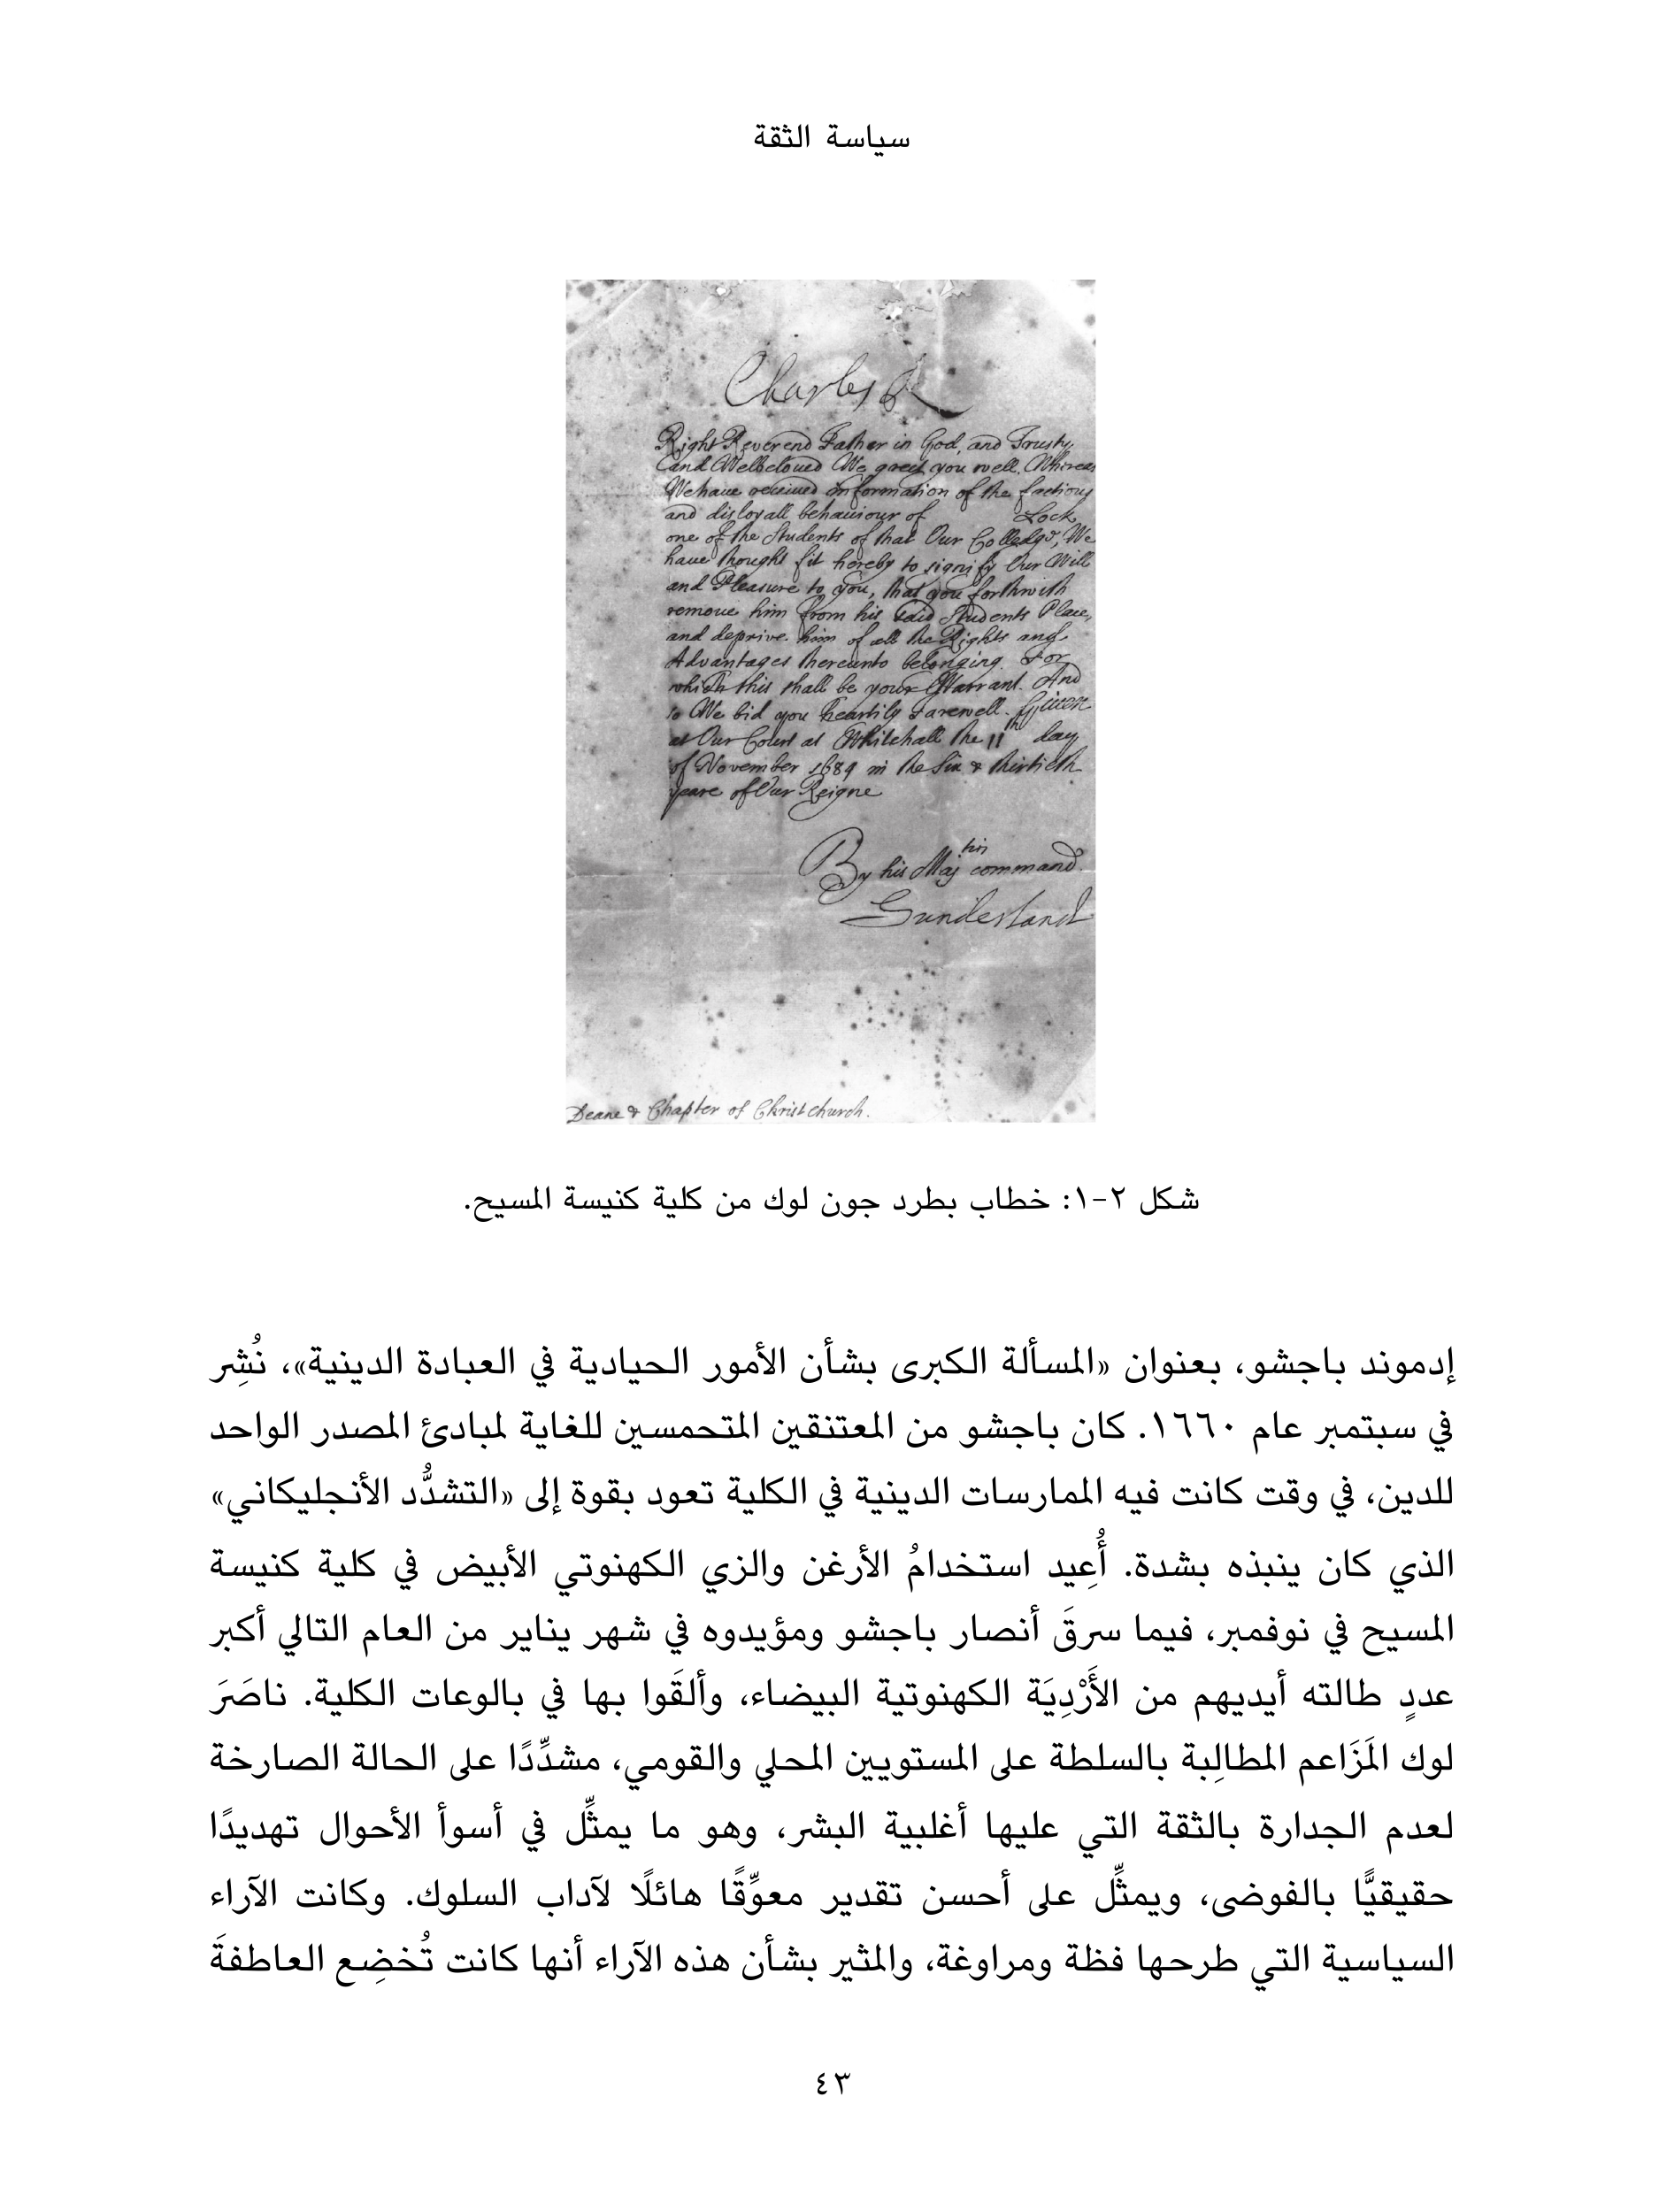 سياسة الثقة
Charles R
Right Reverend Father in God, and Trusty
and Welbeloued We greet you well. Whereas
We haue receiued information of the factious
and disloyall behauiour of Lock,
one of the Students of that Our Colledge, We
haue thought fit hereby to signify Our Will
and Pleasure to you, that you forthwith
remoue him from his said Students Place,
and depriue him of all the Rights and
Advantages thereunto belonging. For
which this shall be your Warrant. And
so We bid you heartily Farewell. Giuen
at Our Court at Whitehall the 11th day
of November 1684 in the Six & thirtieth
yeare of Our Reigne
By his Majties command.
Sunderland
Deane & Chapter of Christchurch.
شكل ٢-١: خطاب بطرد جون لوك من كلية كنيسة المسيح.
إدموند باجشو، بعنوان «المسألة الكبرى بشأن الأمور الحيادية في العبادة الدينية»، نُشِر
في سبتمبر عام ١٦٦٠. كان باجشو من المعتنقين المتحمسين للغاية لمبادئ المصدر الواحد
للدين، في وقت كانت فيه الممارسات الدينية في الكلية تعود بقوة إلى «التشدُّد الأنجليكاني»
الذي كان ينبذه بشدة. أُعِيد استخدامُ الأرغن والزي الكهنوتي الأبيض في كلية كنيسة
المسيح في نوفمبر، فيما سرقَ أنصار باجشو ومؤيدوه في شهر يناير من العام التالي أكبر
عددٍ طالته أيديهم من الأَرْدِيَة الكهنوتية البيضاء، وألقَوا بها في بالوعات الكلية. ناصَرَ
لوك المَزَاعم المطالِبة بالسلطة على المستويين المحلي والقومي، مشدِّدًا على الحالة الصارخة
لعدم الجدارة بالثقة التي عليها أغلبية البشر، وهو ما يمثِّل في أسوأ الأحوال تهديدًا
حقيقيًّا بالفوضى، ويمثِّل على أحسن تقدير معوِّقًا هائلًا لآداب السلوك. وكانت الآراء
السياسية التي طرحها فظة ومراوغة، والمثير بشأن هذه الآراء أنها كانت تُخضِع العاطفةَ
٤٣